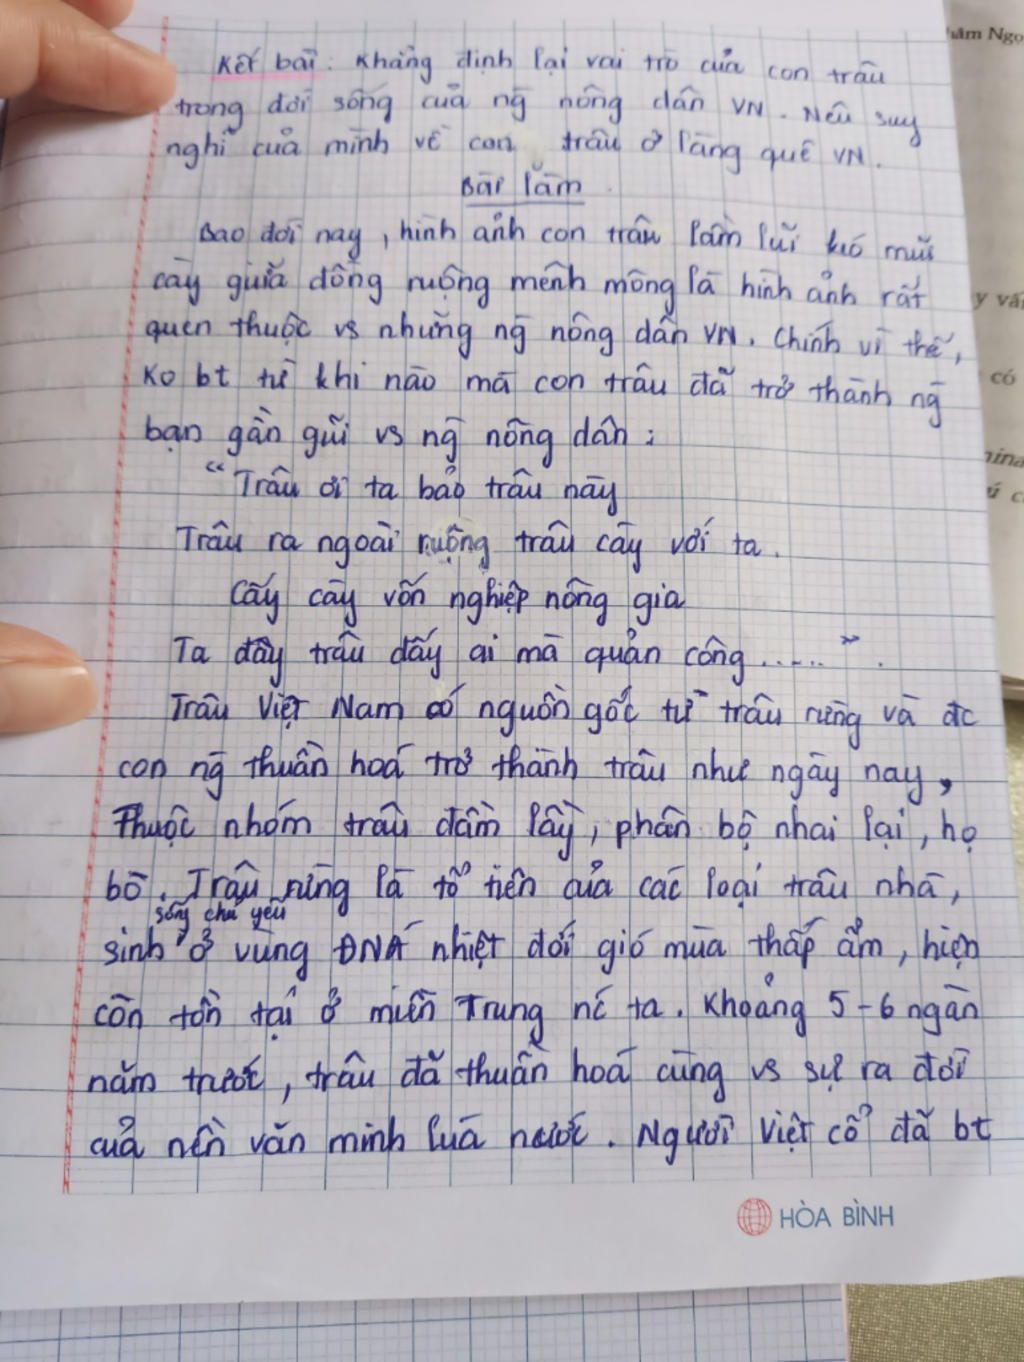 Kết bài: Khẳng định lại vai trò của con trâu
trong đời sống của ng̃ nông dân VN. Nêu suy
nghĩ của mình về con trâu ở làng quê VN.
Bài làm
Bao đời nay, hình ảnh con trâu lầm lũi kéo mũi
cày giữa đồng ruộng mênh mông là hình ảnh rất
quen thuộc vs những ng̃ nông dân VN. Chính vì thế,
Ko bt từ khi nào mà con trâu đã trở thành ng̃
bạn gần gũi vs ng̃ nông dân:
"Trâu ơi ta bảo trâu này
Trâu ra ngoài ruộng trâu cày với ta.
Cấy cày vốn nghiệp nông gia
Ta đây trâu đấy ai mà quản công......".
Trâu Việt Nam có nguồn gốc từ trâu rừng và đc
con ng̃ thuần hoá trở thành trâu như ngày nay,
Thuộc nhóm trâu đầm lầy, phân bộ nhai lại, họ
bò. Trâu rừng là tổ tiên của các loại trâu nhà,
sống chủ yếu
sinh ở vùng ĐNÁ nhiệt đới gió mùa thấp ẩm, hiện
còn tồn tại ở miền Trung nc ta. Khoảng 5-6 ngàn
năm trước, trâu đã thuần hoá cùng vs sự ra đời
của nền văn minh lúa nước. Người Việt cổ đã bt
HÒA BÌNH
Ngọ
y vă
có